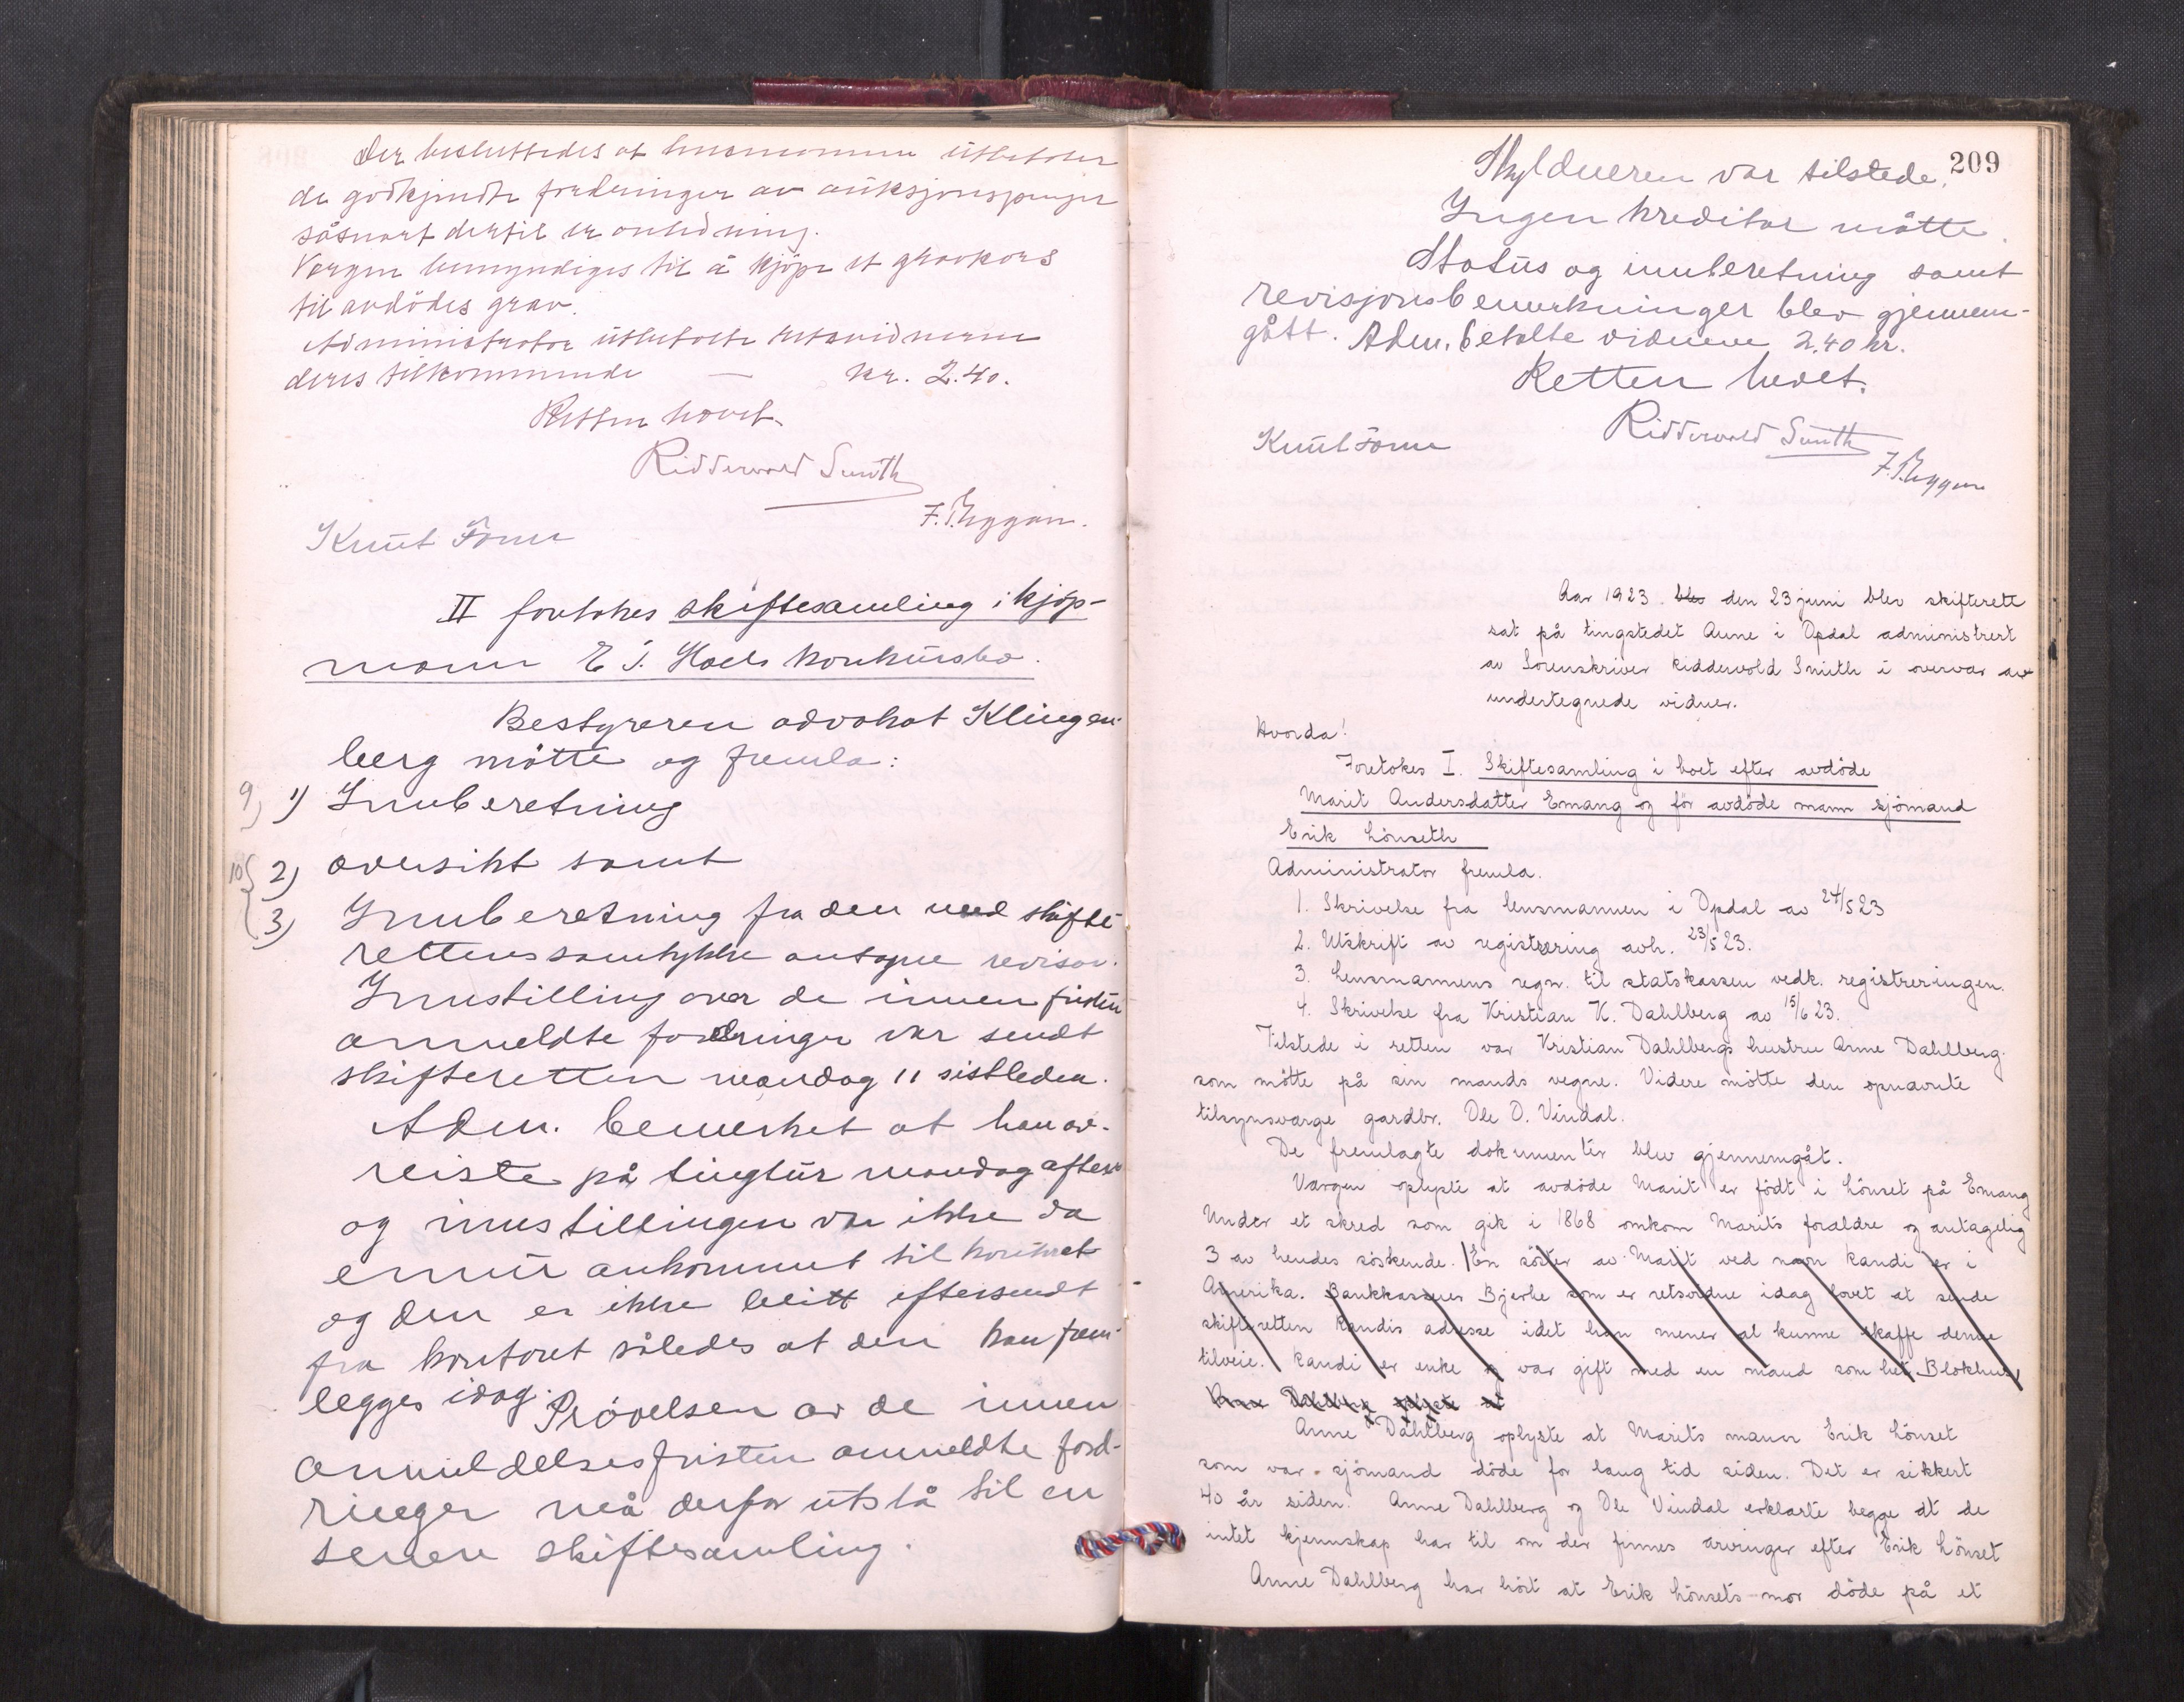 Der besluttedes at lensmannen utbetaler
de godkjendte fordringer av auksjonspenger
såsnart dertil er anledning.
Vergen bemyndiges til å kjøpe et gravkors
til avdödes grav.
Administrator utbetalte retsvidnerne
deres tilkommende — kr. 2.40.
Retten hævet.
Ridderwold Smith
F. Eggan.
Knut
II foretokes skiftesamling i kjöp-
mann E J. Hoels konkursbo.
Bestyreren advokat Klingen-
berg mötte og fremla:
9) 1) Innberetning
10) 2) oversikt samt
3) Innberetning fra den med skifte-
rettens samtykke antagne revisor.
Innstilling over de innen fristen
anmeldte fordringer var sendt
skifteretten mandag 11 sistleden.
Adm. bemerket at han av-
reiste på tingtur mandag aften
og innstillingen var ikke da
ennu ankommet til kontoret
og den er ikke blitt eftersendt
fra kontoret således at den kan frem-
legges idag. Prövelsen av de innen
anmeldelsesfristen anmeldte ford-
ringer må derfor utstå til en
senere skiftesamling.
209
Skyldneren var tilstede.
Ingen kreditor mötte.
Status og innberetning samt
revisjonsbemerkninger blev gjennem-
gått. Adm. betalte vidnene 2.40 kr.
Retten hevet.
Ridderwold Smith
Knut
F. Eggan
Aar 1923 blev den 23 juni blev skifterett
sat på tingstedet Aune i Opdal administrert
av Sorenskriver Ridderwold Smith i overvær av
undertegnede vidner.
Hvorda!
Foretokes I. Skiftesamling i boet efter avdöde
Marit Andersdatter Emang og för avdöde mann sjömand
Erik Lönseth
Administrator fremla.
1. Skrivelse fra lensmannen i Opdal av 24/5 23
2. Utskrift av registrering avh. 23/5 23.
3. Lensmannens regn. til statskassen vedk. registreringen.
4. Skrivelse fra Kristian K. Dahlberg av 15/6 23.
Tilstede i retten var Kristian Dahlbergs hustru Anne Dahlberg
som mötte på sin mands vegne. Videre mötte den opnævnte
tilsynsværge gardbr. Ole O. Vindal.
De fremlagte dokumenter blev gjennemgåt.
Værgen oplyste at avdöde Marit er födt i Lönset på Emang
Under et skred som gik i 1868 omkom Marits foraldre og antagelig
3 av hendes söskende. En söster av Marit ved navn Randi er i
Amerika. Bankkasserer Bjerke som er retsvidne idag lovet at sende
skifteretten Randis adresse idet han mener at kunne skaffe denne
tilveie. Randi er enke og var gift med en mand som het Blokhus
Anne Dahlberg oplyste at
Anne Dahlberg oplyste at Marits mann Erik Lönset
som var sjömand döde for lang tid siden. Det er sikkert
40 år siden. Anne Dahlberg og Ole Vindal erklærte begge at de
intet kjennskap har til om der finnes arvinger efter Erik Lönset
Anne Dahlberg har hört at Erik Lönsets mor döde på et